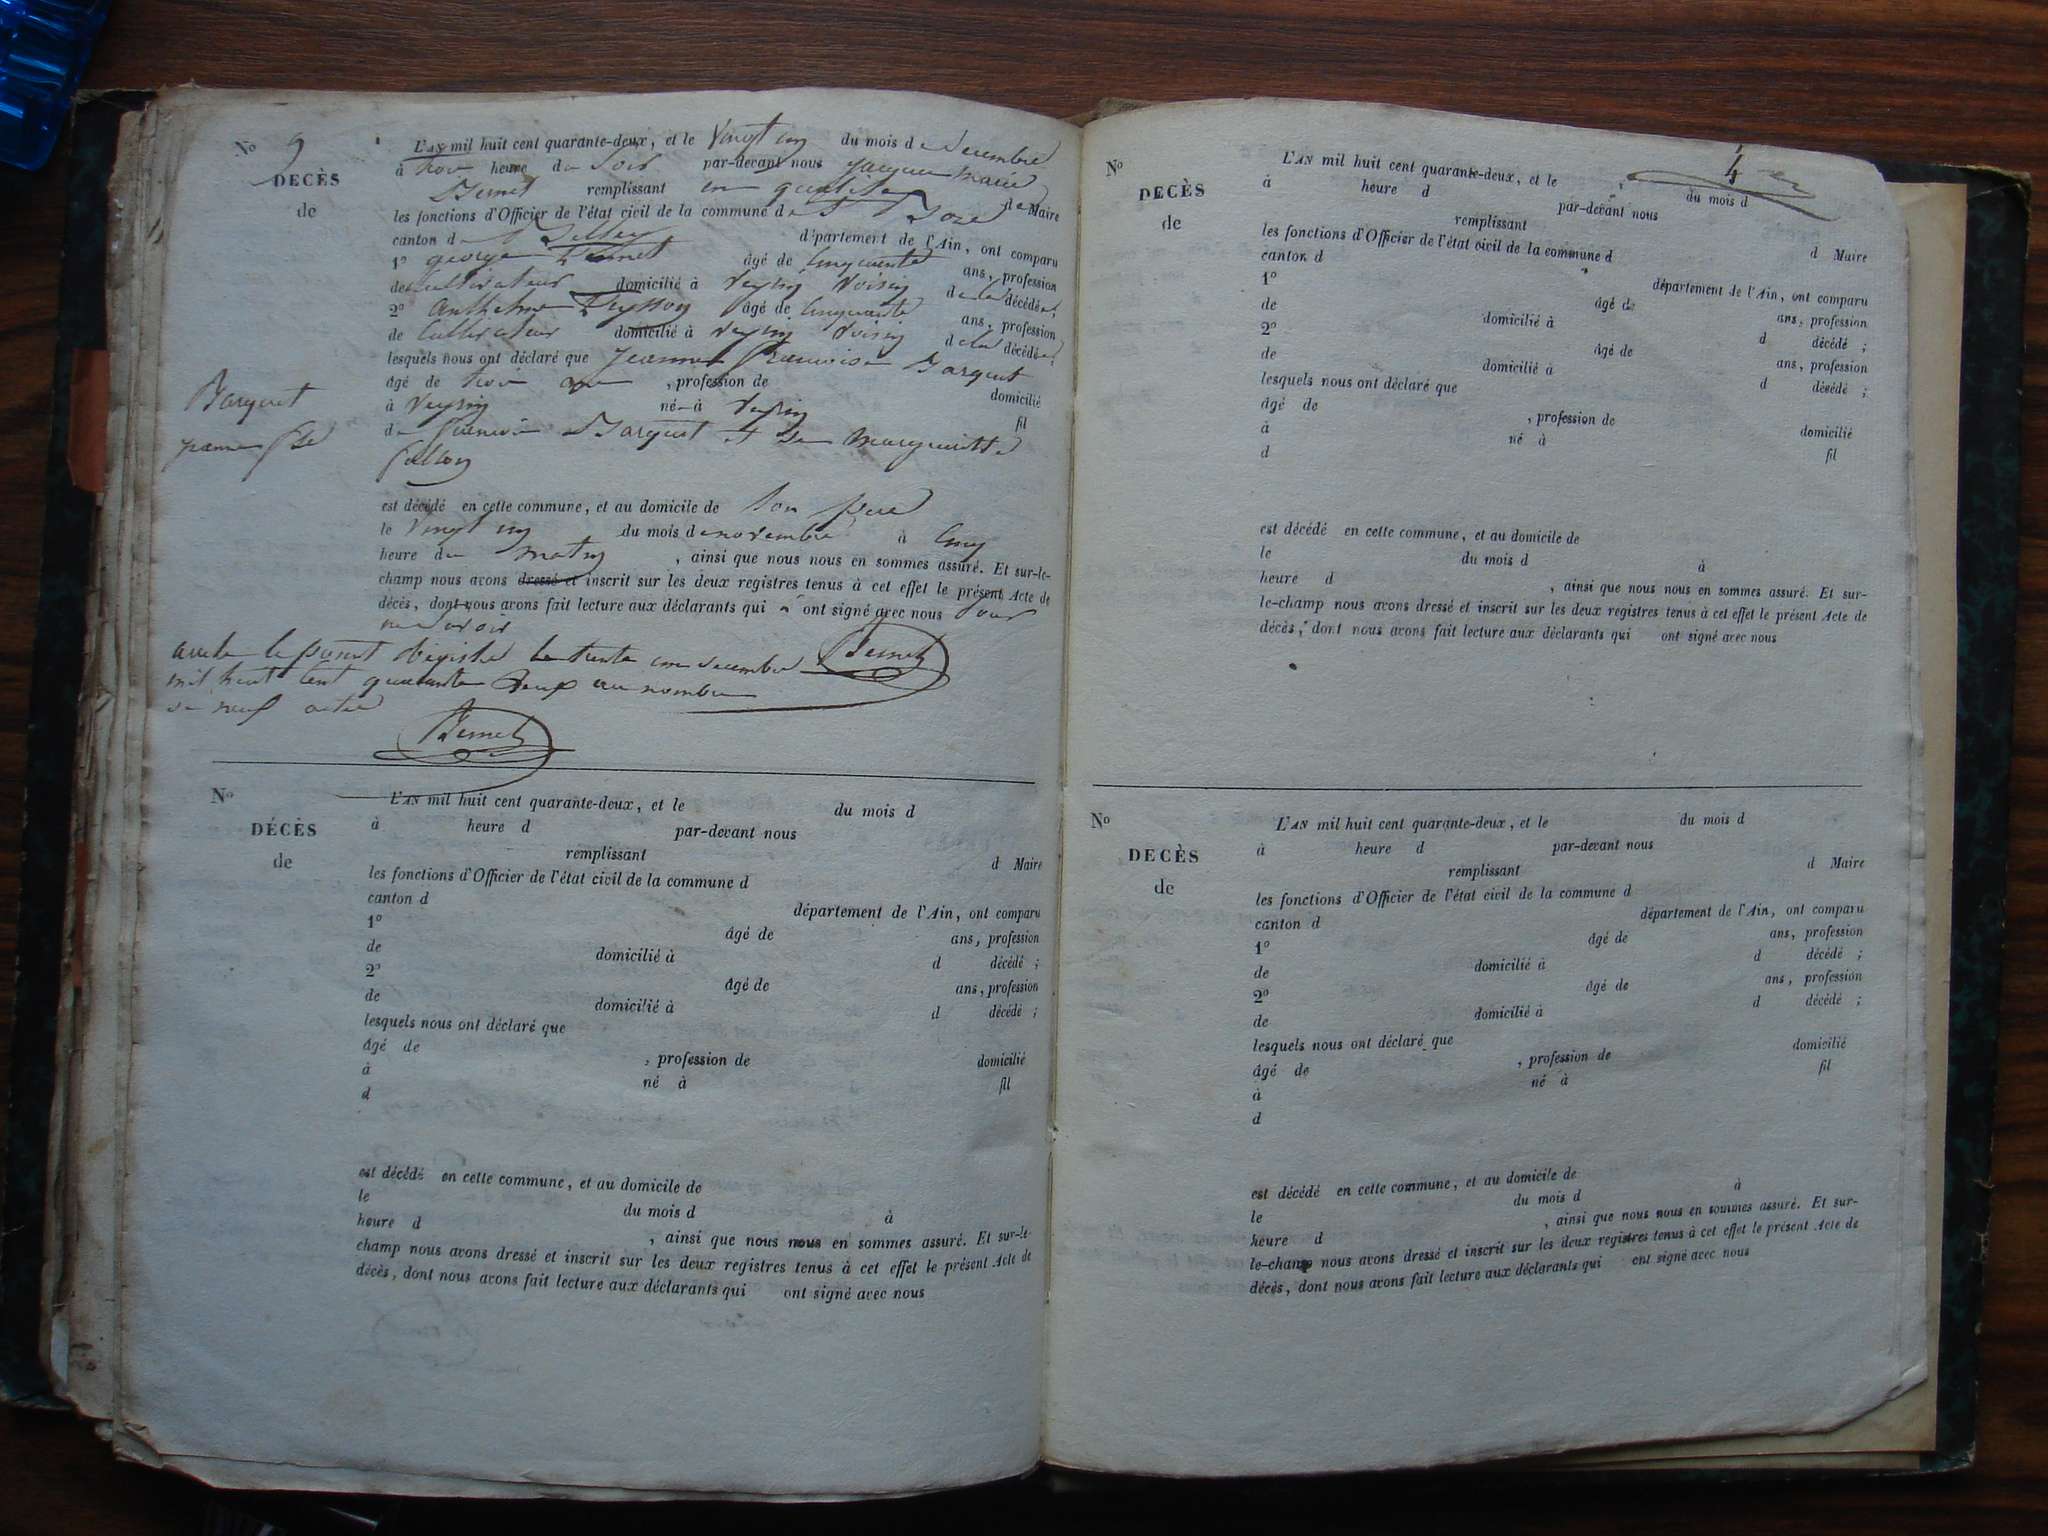 No 9
DECÈS
de
Barquet
jeanne fse
L'AN mil huit cent quarante-deux, et le Vingt un du mois de decembre
à trois heure du Soir par-devant nous jacques marie
Bernet remplissant en qualité de Maire
les fonctions d'Officier de l'état civil de la commune d
canton de Belley département de l'Ain, ont comparu
1o george âgé de cinquante ans, profession
de Cultivateur domicilié à Veyrin Voisin de la décédée,
2o anthelme Peysson âgé de cinquante ans, profession
de Cultivateur domicilié à Veyrin Voisin de la décédée;
lesquels nous ont déclaré que jeanne francoise Barquet
âgé de trois ans, profession de domicilié
à Veyrin né à Veyrin fil
de francois Barquet et de Margueritte
est décédé en cette commune, et au domicile de Son père
le Vingt un du mois de novembre à Cinq
heure du matin, ainsi que nous nous en sommes assuré. Et sur-le-
champ nous avons dressé et inscrit sur les deux registres tenus à cet effet le présent Acte de
décès, dont nous avons fait lecture aux déclarants qui ont signé avec nous pour
ne Savoir
arrete le present Registre le trente un decembre Bernet
mil huit cent quarante Deux au nombre
de neuf actes
Bernet
No
DÉCÈS
de
L'AN mil huit cent quarante-deux, et le du mois d
à heure d par-devant nous
remplissant d Maire
les fonctions d'Officier de l'état civil de la commune d
canton d département de l'Ain, ont comparu
1o âgé de ans, profession
de domicilié à d décédé;
2o âgé de ans, profession
de domicilié à d décédé;
lesquels nous ont déclaré que
âgé de , profession de domicilié
à né à fil
d
est décédé en cette commune, et au domicile de
le du mois d à
heure d , ainsi que nous nous en sommes assuré. Et sur-le-
champ nous avons dressé et inscrit sur les deux registres tenus à cet effet le présent Acte de
décès, dont nous avons fait lecture aux déclarants qui ont signé avec nous
4
No
DECÈS
de
L'AN mil huit cent quarante-deux, et le , du mois d
à heure d par-devant nous
remplissant d Maire
les fonctions d'Officier de l'état civil de la commune d
canton d département de l'Ain, ont comparu
1o âgé de ans, profession
de domicilié à d décédé;
2o âgé de ans, profession
de domicilié à d désédé;
lesquels nous ont déclaré que
âgé de , profession de domicilié
à né à fil
d
est décédé en cette commune, et au domicile de
le du mois d à
heure d , ainsi que nous nous en sommes assuré. Et sur-
le-champ nous avons dressé et inscrit sur les deux registres tenus à cet effet le présent Acte de
décès, dont nous avons fait lecture aux déclarants qui ont signé avec nous
No
DECÈS
de
L'AN mil huit cent quarante-deux, et le du mois d
à heure d par-devant nous
remplissant d Maire
les fonctions d'Officier de l'état civil de la commune d
canton d département de l'Ain, ont comparu
1o âgé de ans, profession
de domicilié à d décédé;
2o âgé de ans, profession
de domicilié à d décédé;
lesquels nous ont déclaré que
âgé de , profession de domicilié
à né à fil
d
est décédé en cette commune, et au domicile de
le du mois d à
heure d , ainsi que nous nous en sommes assuré. Et sur-
le-champ nous avons dressé et inscrit sur les deux registres tenus à cet effet le présent Acte de
décès, dont nous avons fait lecture aux déclarants qui ont signé avec nous